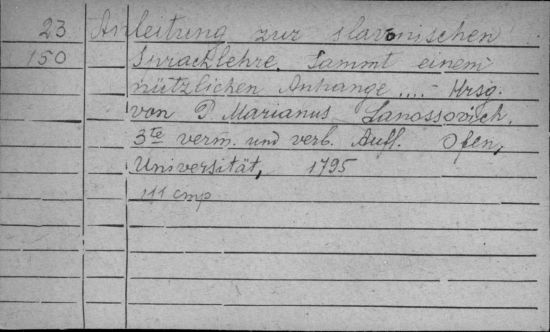 23 Anleitung zur slavonischen
150 Sprachlehre. Sammt einem
nützlichen Anhange .... Hrsg.
von P Marianus Lanossovich.
3te verm. und verb. Aufl. Ofen,
Universität, 1795
111 стр